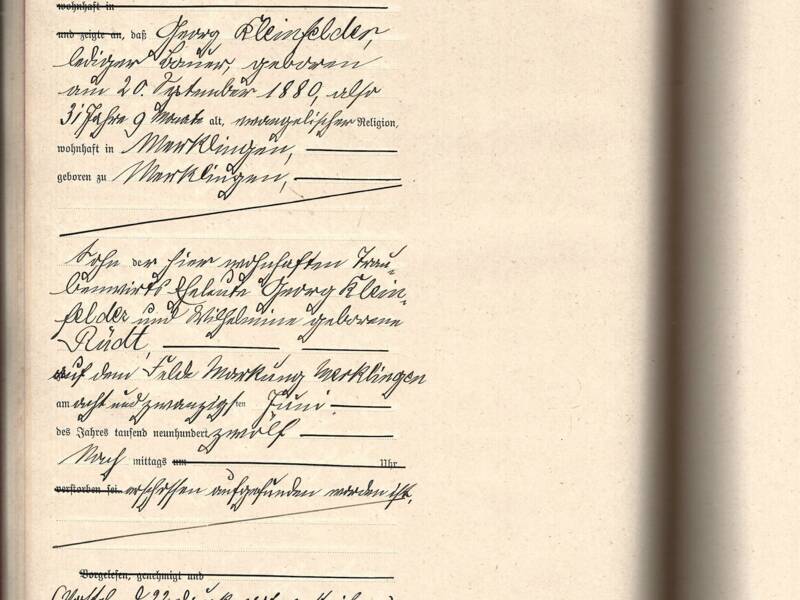 wohnhaft in
und zeigte an, daß Georg Kleinfelder,
lediger Bauer, geboren
am 20. September 1880, also
31 Jahre 9 Monate alt, evangelischer Religion,
wohnhaft in Merklingen,
geboren zu Merklingen,
Sohn der hier wohnhaften Trau-
benwirts Eheleute Georg Klein-
felder und Wilhelmine geborene
Rüdt,
auf dem Felde Markung Merklingen
am acht und zwanzigsten Juni
des Jahres tausend neunhundert zwölf
Nach mittags um Uhr
verstorben sei. erschossen aufgefunden worden ist.
Vorgelesen, genehmigt und